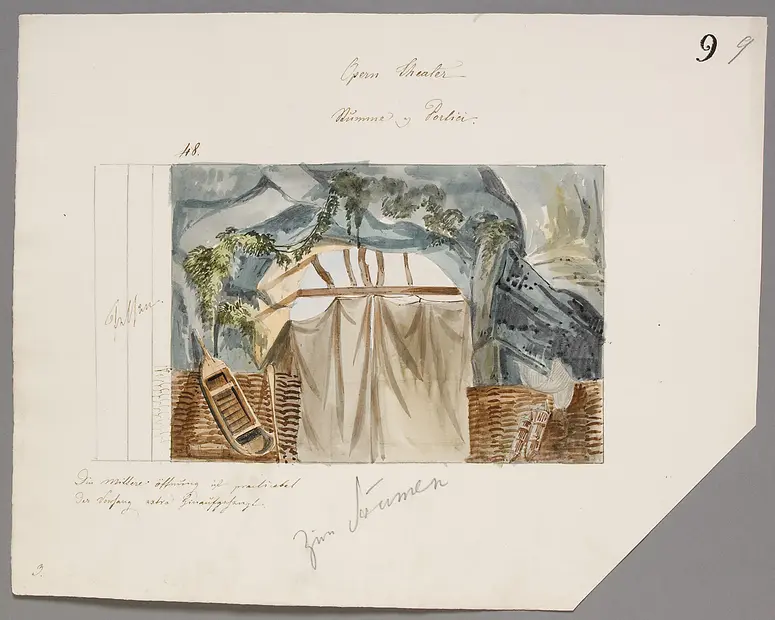 9 9
Opern Theater
Stumme v Portici.
48.
Felsen.
Die Mittere Öffnung ist practicabel
der Vorhang extra hinaufgehängt
Zum Säumen
3.